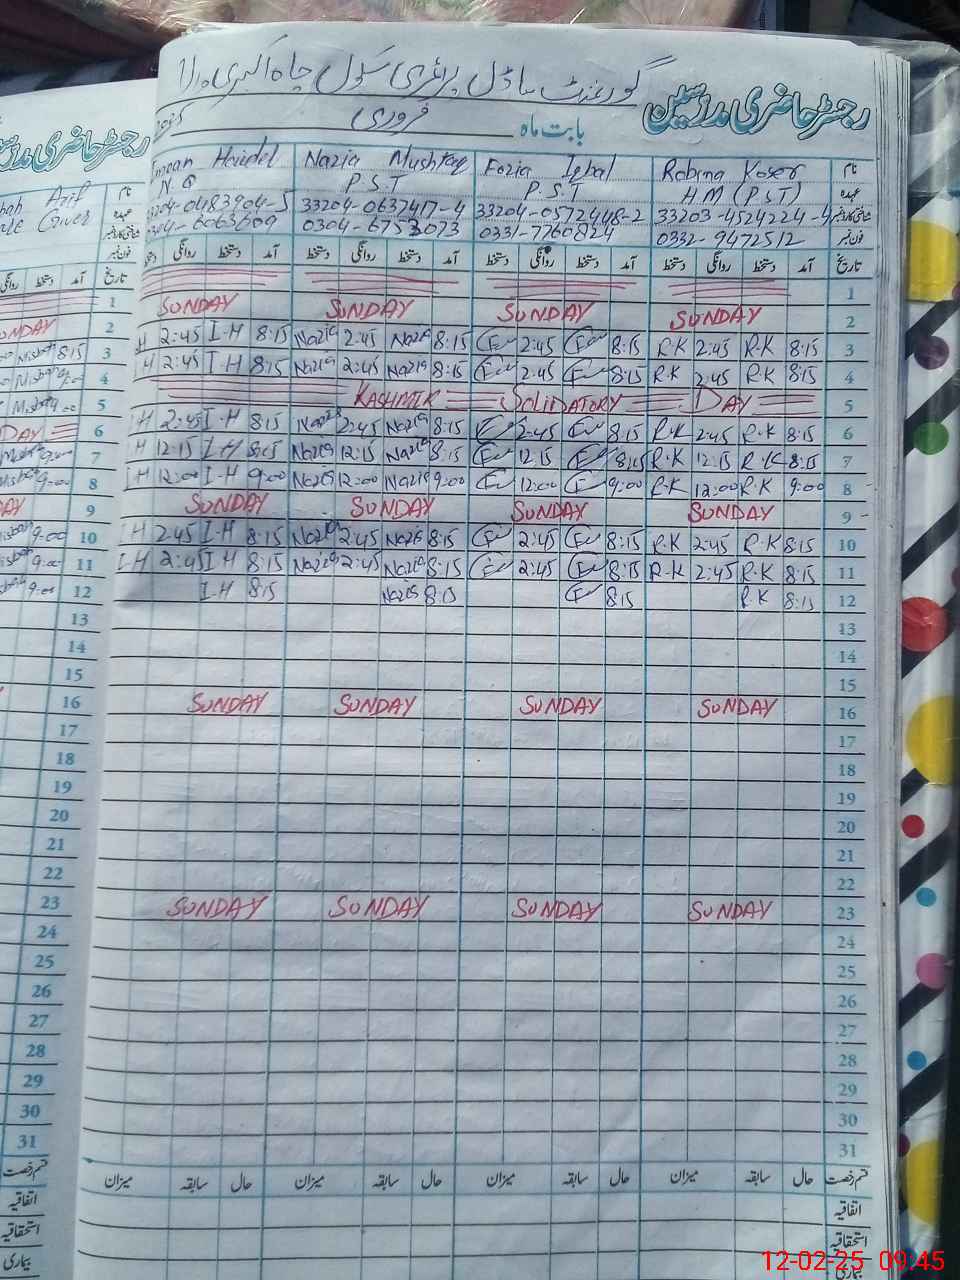 رجسٹر حاضری مدرسین گورنمنٹ ماڈل پرائمری سکول چاہ اکبری والا
بابت ماہ فروری
نام Robina Koser Fozia Iqbal Nazia Mushtaq Haidel
عہدہ HM (PST) P.S.T P.S.T N.Q
شناختی کارڈ نمبر 33203-4524224-4 33204-0572448-2 33204-0637417-4 33204-0483904-5
فون نمبر 0332-9472512 0331-7760824 0304-6753073
تاریخ آمد دستخط روانگی دستخط آمد دستخط روانگی دستخط آمد دستخط روانگی دستخط آمد دستخط روانگی دستخط
1
2 SUNDAY SUNDAY SUNDAY SUNDAY
3 8:15 R.K 2:45 R.K 8:15 2:45 8:15 Nazia 2:45 Nazia 8:15 I-H 2:45 H
4 8:15 R.K 2:45 R.K 8:15 2:45 8:15 Nazia 2:45 Nazia 8:15 I-H 2:45 H
5 KASHMIR SOLIDATORY DAY
6 8:15 R.K 2:45 R.K 8:15 2:45 8:15 Nazia 2:45 Nazia 8:15 I-H 2:45 H
7 8:15 R.K 12:15 R.K 8:15 12:15 8:15 Nazia 12:15 Nazia 8:15 I-H 12:15 H
8 9:00 R.K 12:00 R.K 9:00 12:00 9:00 Nazia 12:00 Nazia 9:00 I-H 12:00 I H
9 SUNDAY SUNDAY SUNDAY SUNDAY
10 8:15 R.K 2:45 R.K 8:15 2:45 8:15 Nazia 2:45 Nazia 8:15 I-H 2:45 I H
11 8:15 R.K 2:45 R.K 8:15 2:45 8:15 Nazia 2:45 Nazia 8:15 I-H 2:45 I-H
12 8:15 R.K 8:15 8:15 Nazia 8:15 I-H
13
14
15
16 SUNDAY SUNDAY SUNDAY SUNDAY
17
18
19
20
21
22
23 SUNDAY SUNDAY SUNDAY SUNDAY
24
25
26
27
28
29
30
31
قسم رخصت حال سابقہ میزان حال سابقہ میزان حال سابقہ میزان حال سابقہ میزان
اتفاقیہ
استحقاقیہ
بیماری
رجسٹر حاضری مدرسین
نام Asif
عہدہ
شناختی کارڈ نمبر
فون نمبر
تاریخ آمد دستخط روانگی
1
2 SUNDAY
3 8:15 Misbah
4 9:00 Misbah
5 9:00 Misbah
6 DAY
7 9:00 Misbah
8 9:00 Misbah
9
10 9:00 Misbah
11 9:00 Misbah
12 9:00 Misbah
13
14
15
16
17
18
19
20
21
22
23
24
25
26
27
28
29
30
31
قسم رخصت
اتفاقیہ
استحقاقیہ
بیماری
12-02-25 09:45